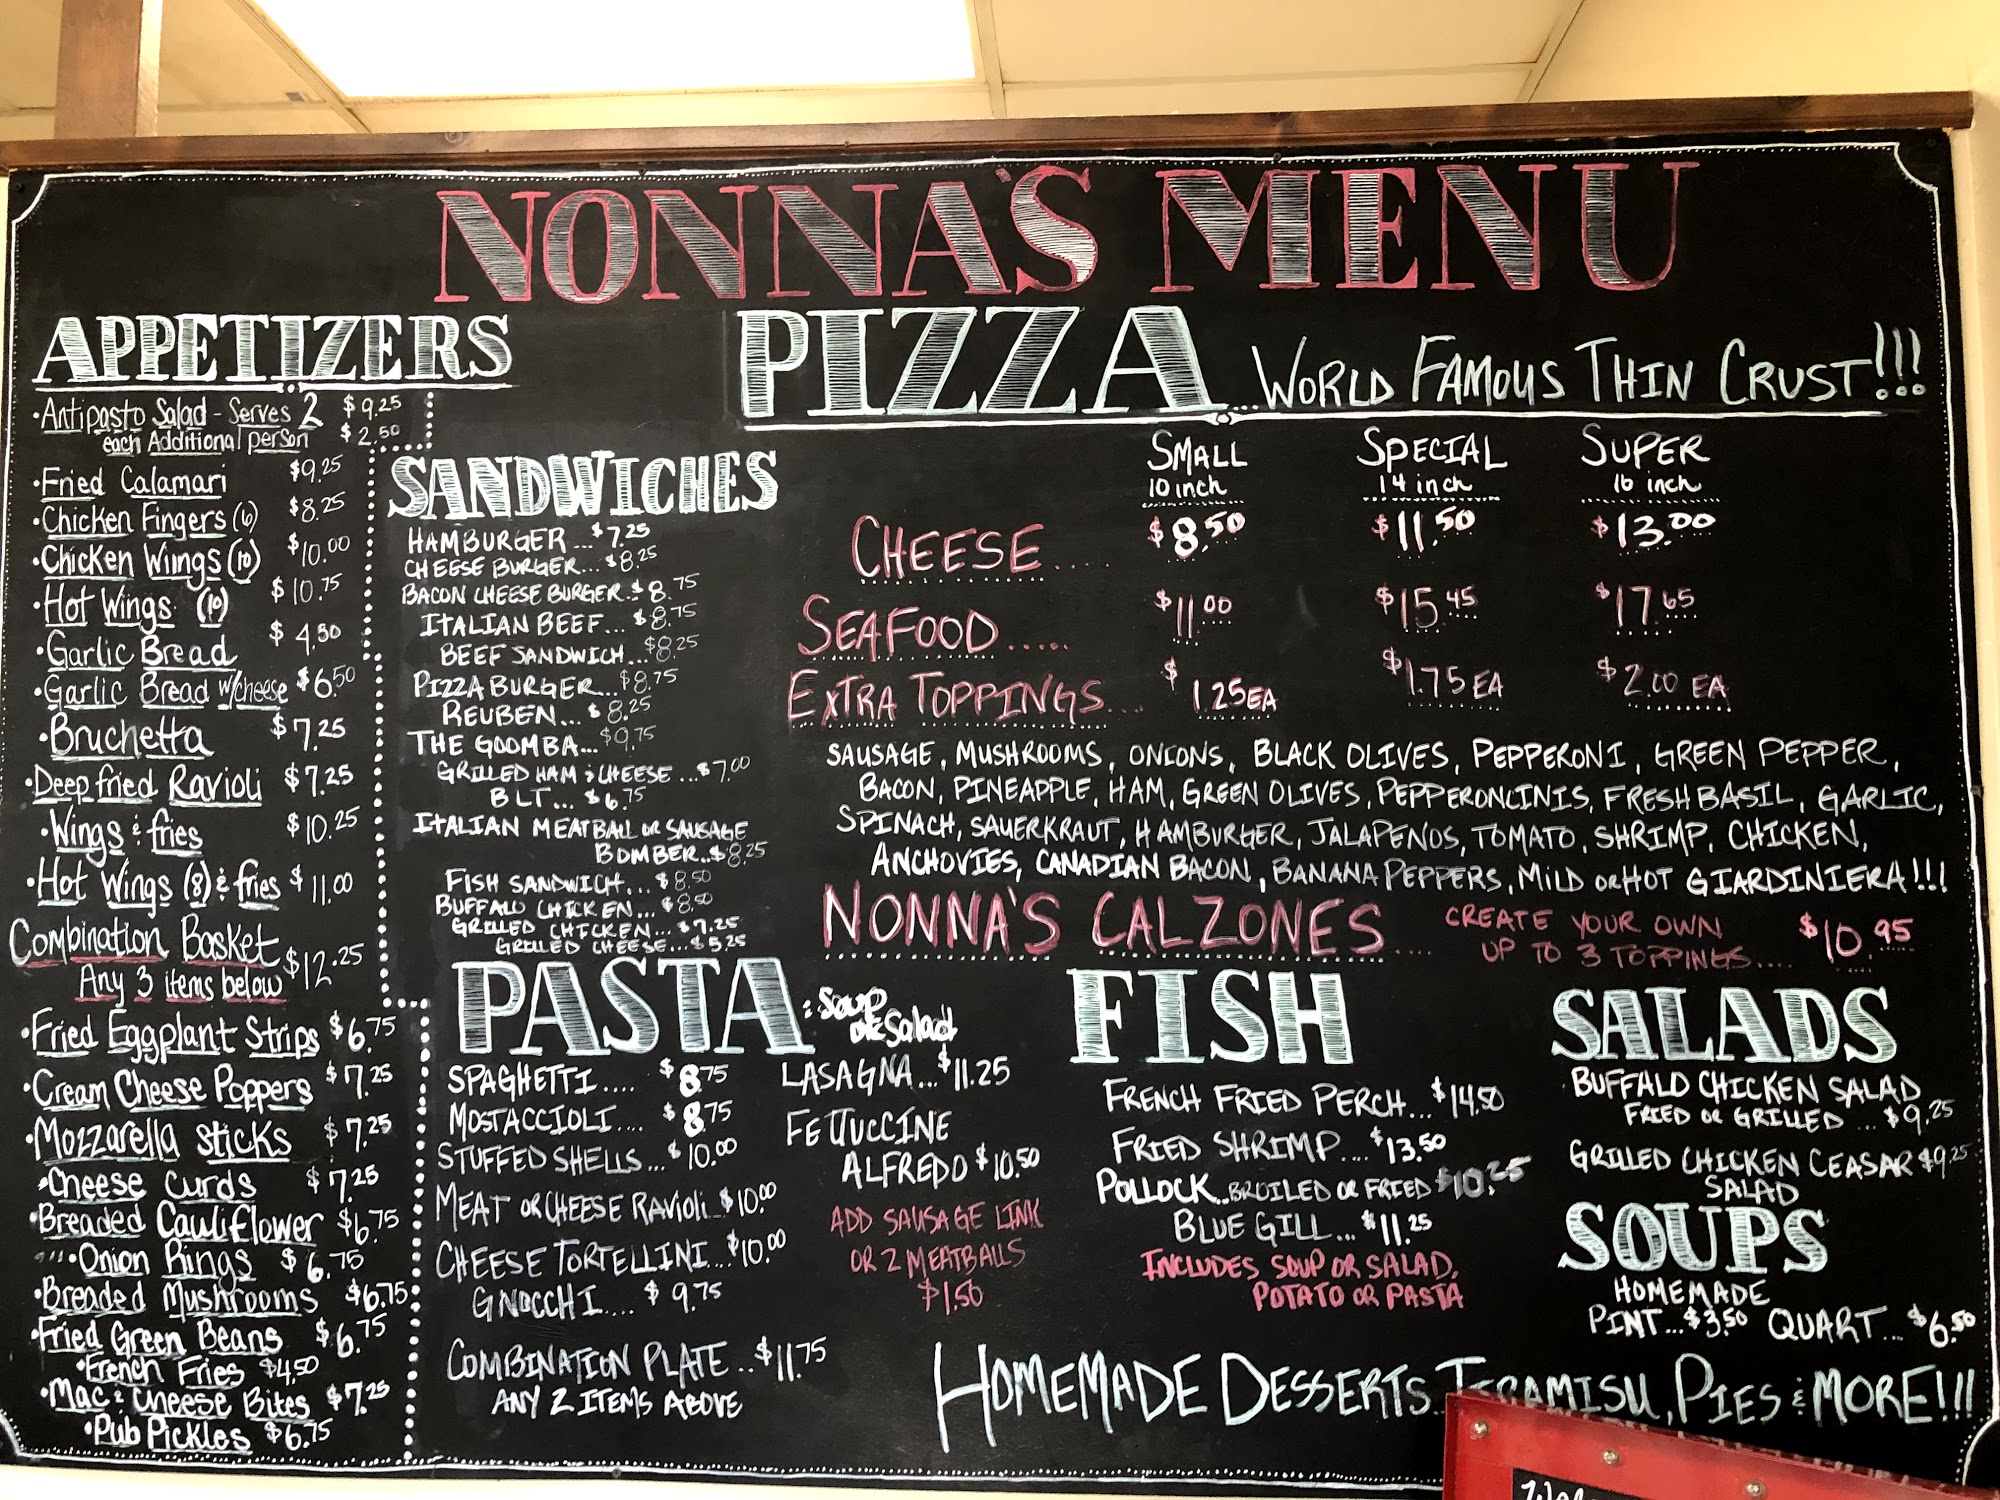 NONNA'S MENU
APPETIZERS
•Antipasto Salad - Serves 2 $9.25
each Additional person $2.50
•Fried Calamari $9.25
•Chicken Fingers (6) $8.25
•Chicken Wings (10) $10.00
•Hot Wings (10) $10.75
•Garlic Bread $4.50
•Garlic Bread w/cheese $6.50
•Bruchetta $7.25
•Deep fried Ravioli $7.25
•Wings & fries $10.25
•Hot Wings (8) & fries $11.00
Combination Basket
Any 3 items below $12.25
•Fried Eggplant Strips $6.75
•Cream Cheese Poppers $7.25
•Mozzarella Sticks $7.25
•Cheese Curds $7.25
•Breaded Cauliflower $6.75
•Onion Rings $6.75
•Breaded Mushrooms $6.75
•Fried Green Beans $6.75
•French Fries $4.50
•Mac & Cheese Bites $7.25
•Pub Pickles $6.75
SANDWICHES
HAMBURGER...$7.25
CHEESE BURGER...$8.25
BACON CHEESE BURGER..$8.75
ITALIAN BEEF...$8.75
BEEF SANDWICH...$8.25
PIZZA BURGER...$8.75
REUBEN...$8.25
THE GOOMBA...$9.75
GRILLED HAM & CHEESE...$7.00
BLT...$6.75
ITALIAN MEATBALL OR SAUSAGE
BOMBER..$8.25
FISH SANDWICH...$8.50
BUFFALO CHICKEN...$8.50
GRILLED CHICKEN...$7.25
GRILLED CHEESE...$5.25
PIZZA...WORLD FAMOUS THIN CRUST!!!
SMALL SPECIAL SUPER
10 inch 14 inch 16 inch
CHEESE..... $8.50 $11.50 $13.00
SEAFOOD..... $11.00 $15.45 $17.65
EXTRA TOPPINGS.... $1.25EA $1.75EA $2.00 EA
SAUSAGE, MUSHROOMS, ONIONS, BLACK OLIVES, PEPPERONI, GREEN PEPPER,
BACON, PINEAPPLE, HAM, GREEN OLIVES, PEPPERONCINIS, FRESH BASIL, GARLIC,
SPINACH, SAUERKRAUT, HAMBURGER, JALAPENOS, TOMATO, SHRIMP, CHICKEN,
ANCHOVIES, CANADIAN BACON, BANANA PEPPERS, MILD OR HOT GIARDINIERA!!!
NONNA'S CALZONES.... CREATE YOUR OWN
UP TO 3 TOPPINGS.... $10.95
PASTA: Soup
OR Salad
SPAGHETTI.... $8.75
MOSTACCIOLI.... $8.75
STUFFED SHELLS... $10.00
MEAT OR CHEESE RAVIOLI..$10.00
CHEESE TORTELLINI...$10.00
GNOCCHI.... $9.75
COMBINATION PLATE..$11.75
ANY 2 ITEMS ABOVE
LASAGNA...$11.25
FETTUCCINE
ALFREDO $10.50
ADD SAUSAGE LINK
OR 2 MEATBALLS
$1.50
FISH
FRENCH FRIED PERCH...$14.50
FRIED SHRIMP....$13.50
POLLOCK..BROILED OR FRIED $10.25
BLUE GILL...$11.25
INCLUDES SOUP OR SALAD,
POTATO OR PASTA
SALADS
BUFFALO CHICKEN SALAD
FRIED OR GRILLED ...$9.25
GRILLED CHICKEN CEASAR $9.25
SALAD
SOUPS
HOMEMADE
PINT...$3.50 QUART...$6.50
HOMEMADE DESSERTS...TIRAMISU, PIES & MORE!!!